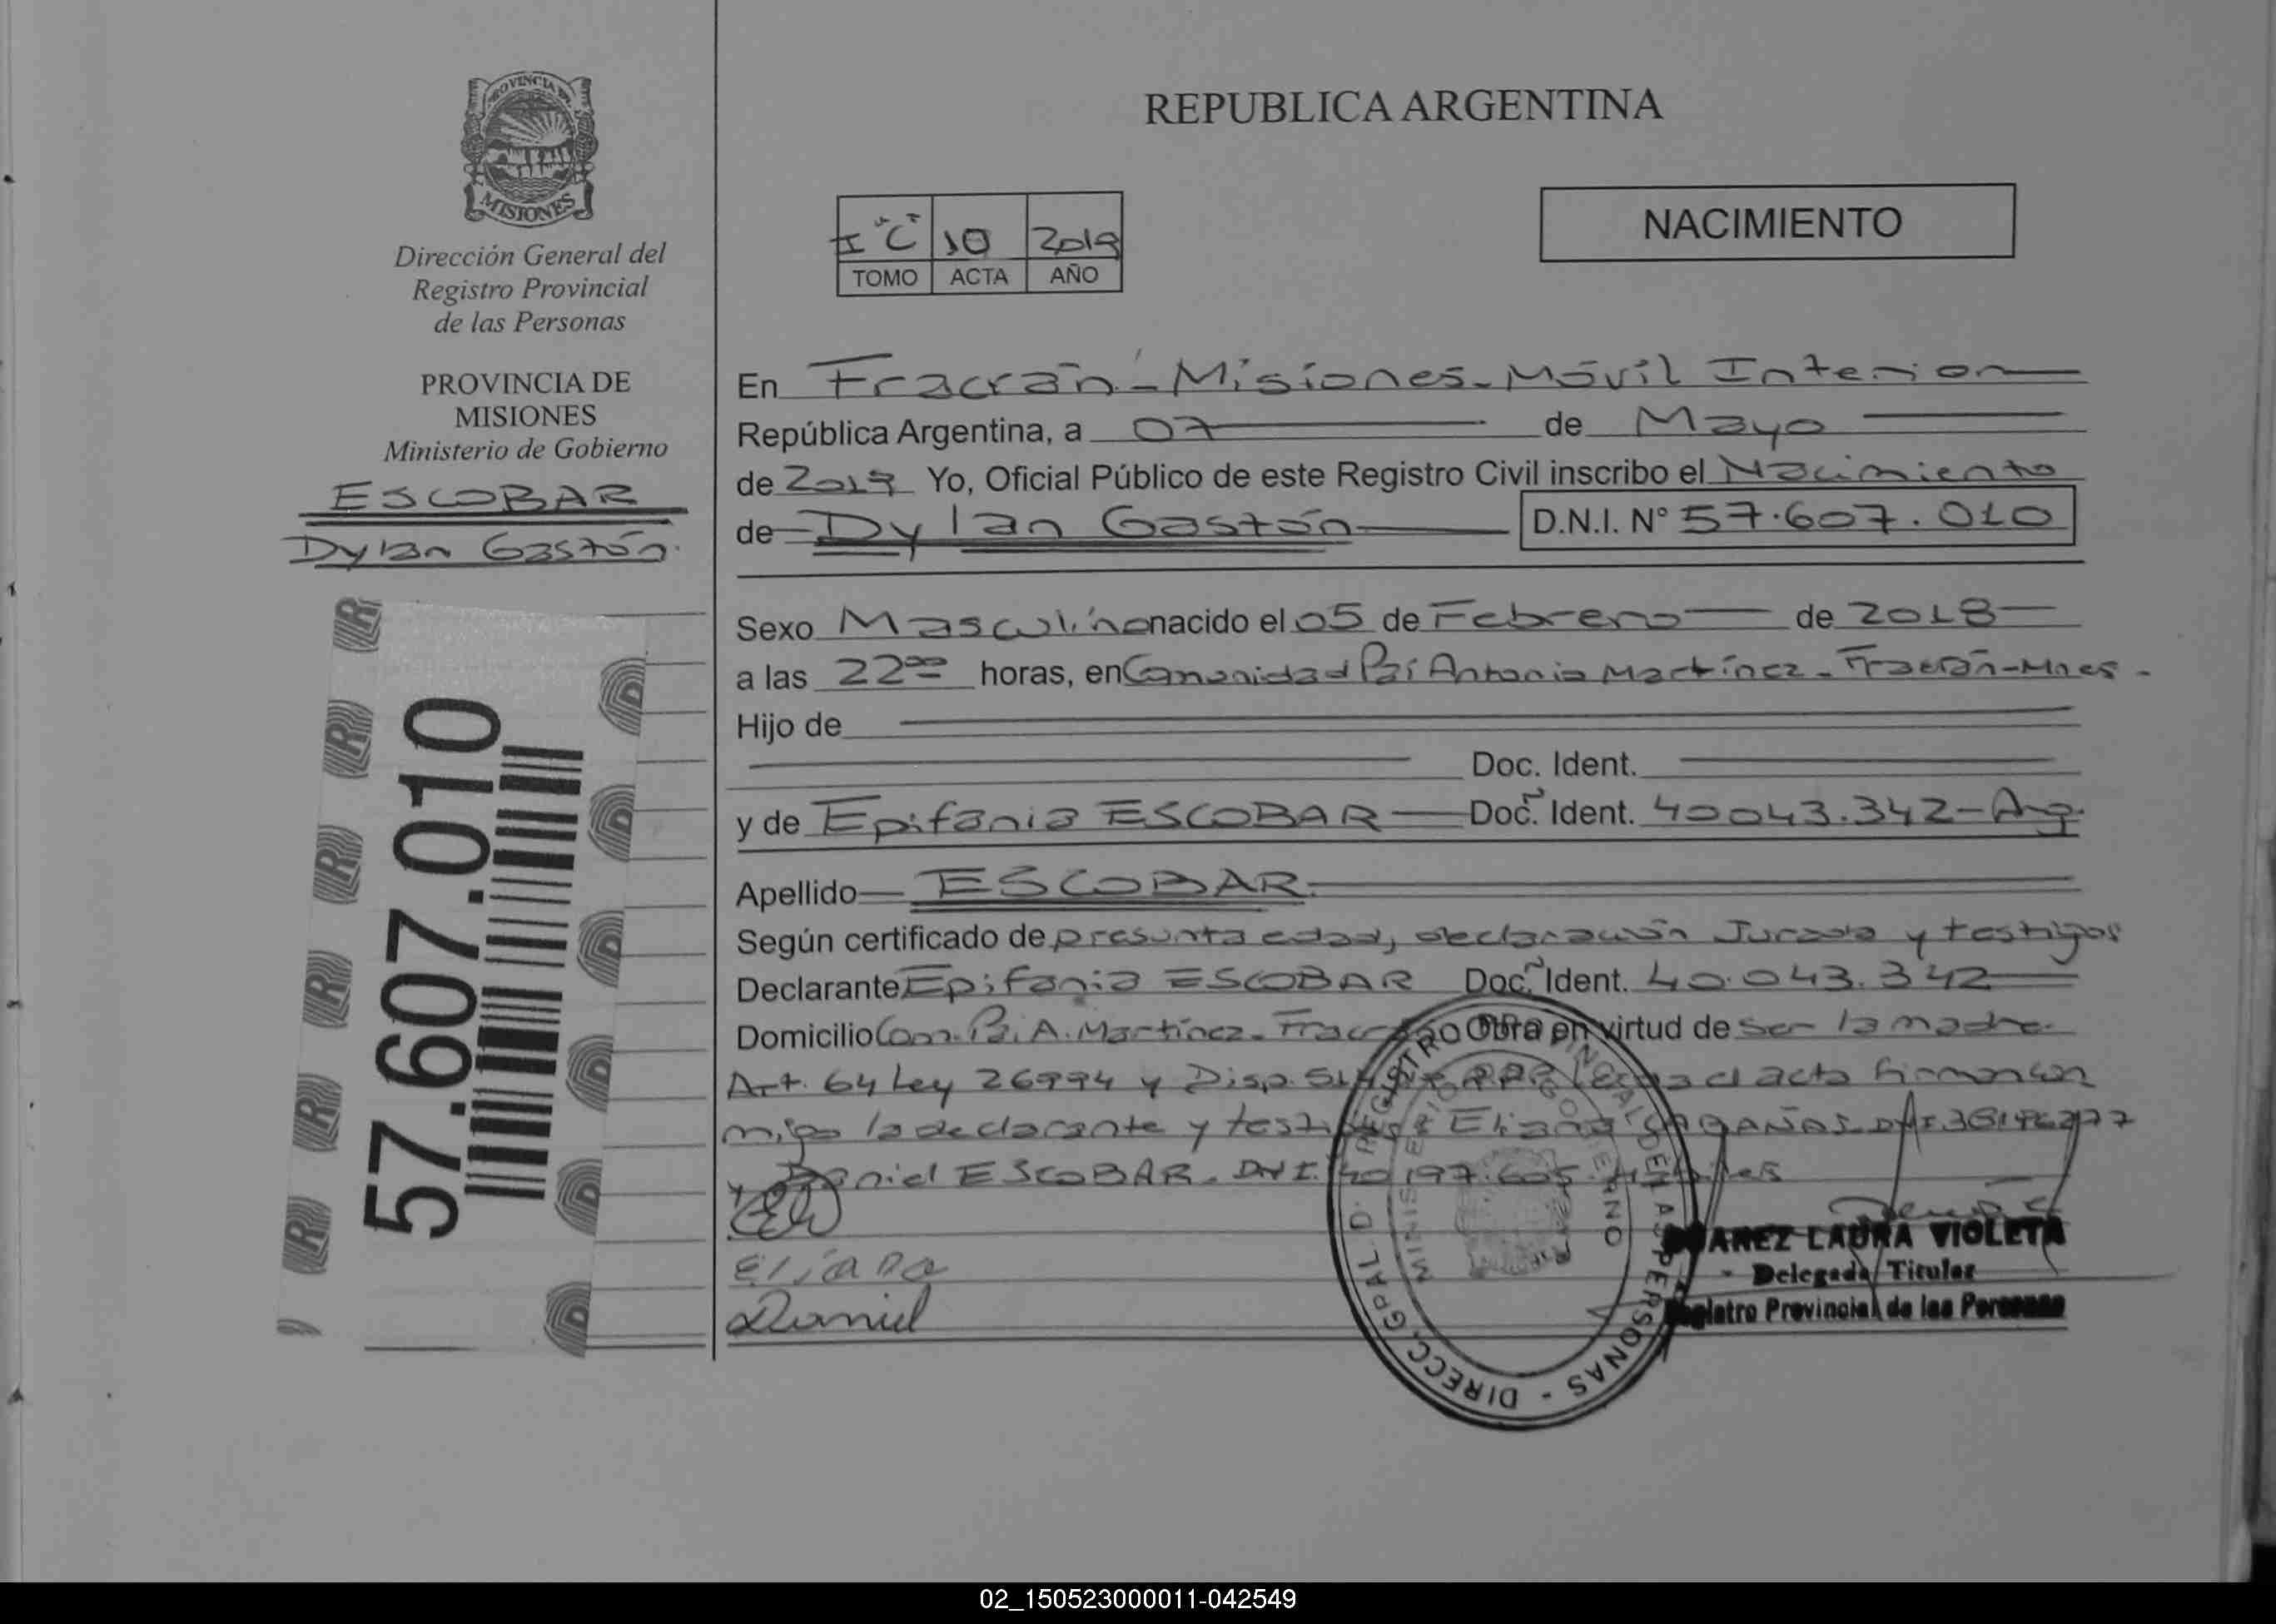 PROVINCIA DE
MISIONES
Dirección General del
Registro Provincial
de las Personas
PROVINCIA DE
MISIONES
Ministerio de Gobierno
ESCOBAR
Dylan Gastón.
57.607.010
REPUBLICA ARGENTINA
I "C" 10 2019
TOMO ACTA AÑO
NACIMIENTO
En Fracrán - Misiones - Móvil Interior
República Argentina, a 07 de Mayo
de 2019 Yo, Oficial Público de este Registro Civil inscribo el Nacimiento
de Dylan Gastón D.N.I. N° 57.607.010
Sexo Masculino nacido el 05 de Febrero de 2018
a las 22⁰⁰ horas, en Comunidad Paí Antonio Martínez - Fracrán - Mnes -
Hijo de
Doc. Ident.
y de Epifania ESCOBAR Doc. Ident. 40043.342 - Arg.
Apellido ESCOBAR.
Según certificado de presunta edad, declaración Jurada y testigos
Declarante Epifania ESCOBAR Doc. Ident. 40.043.342
Domicilio Com. Pai. A. Martínez - Obra en virtud de ser la madre.
Art. 64 Ley 26994 y Disp. el acta firman con
migo la declarante y Eliana
y Daniel ESCOBAR. DNI. 40197.605
Eliana
Daniel
LAURA VIOLETA
Delegada Titular
Registro Provincial de las Personas
DIRECC. GRAL. D. REGISTRO PROVINCIAL DE LAS PERSONAS -
MINISTERIO GOBIERNO
02_150523000011-042549